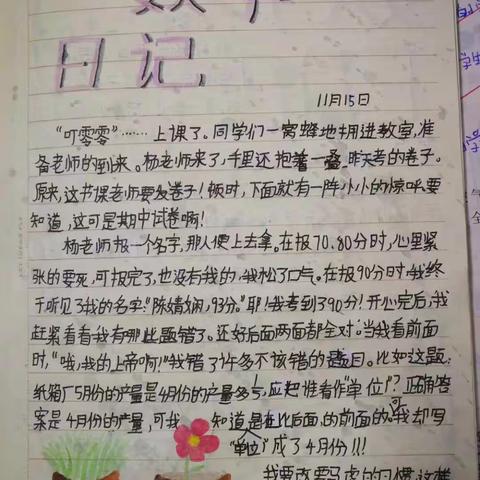 数学
日记
11月15日
“叮零零”……上课了。同学们一窝蜂地拥进教室,准
备老师的到来。杨老师来了,千里还抱着一叠昨天考的卷子。
原来,这节课老师要发卷子!顿时,下面就有一阵小小的惊呼。要
知道,这可是期中试卷啊!
杨老师报一个名字,那人便上去拿。在报70、80分时,心里紧
张的要死,可报完了,也没有我的,我松了口气。在报90分时,我终
于听见了我的名字:“陈婧娴,93分。”耶!我考到了90分!开心完后,我
赶紧看看我有哪些题错了。还好后面两面都全对。当我看前面
时,“哦,我的上帝啊!”我错了许多不该错的题目。比如这题:
纸箱厂5月份的产量是4月份的产量多,应把谁看作“单位1”?正确答
案是4月份的产量,可我知道是在比后面,的前面的。可我却写
“单位1”成了4月份!!!
我要改要马虎的习惯,这样